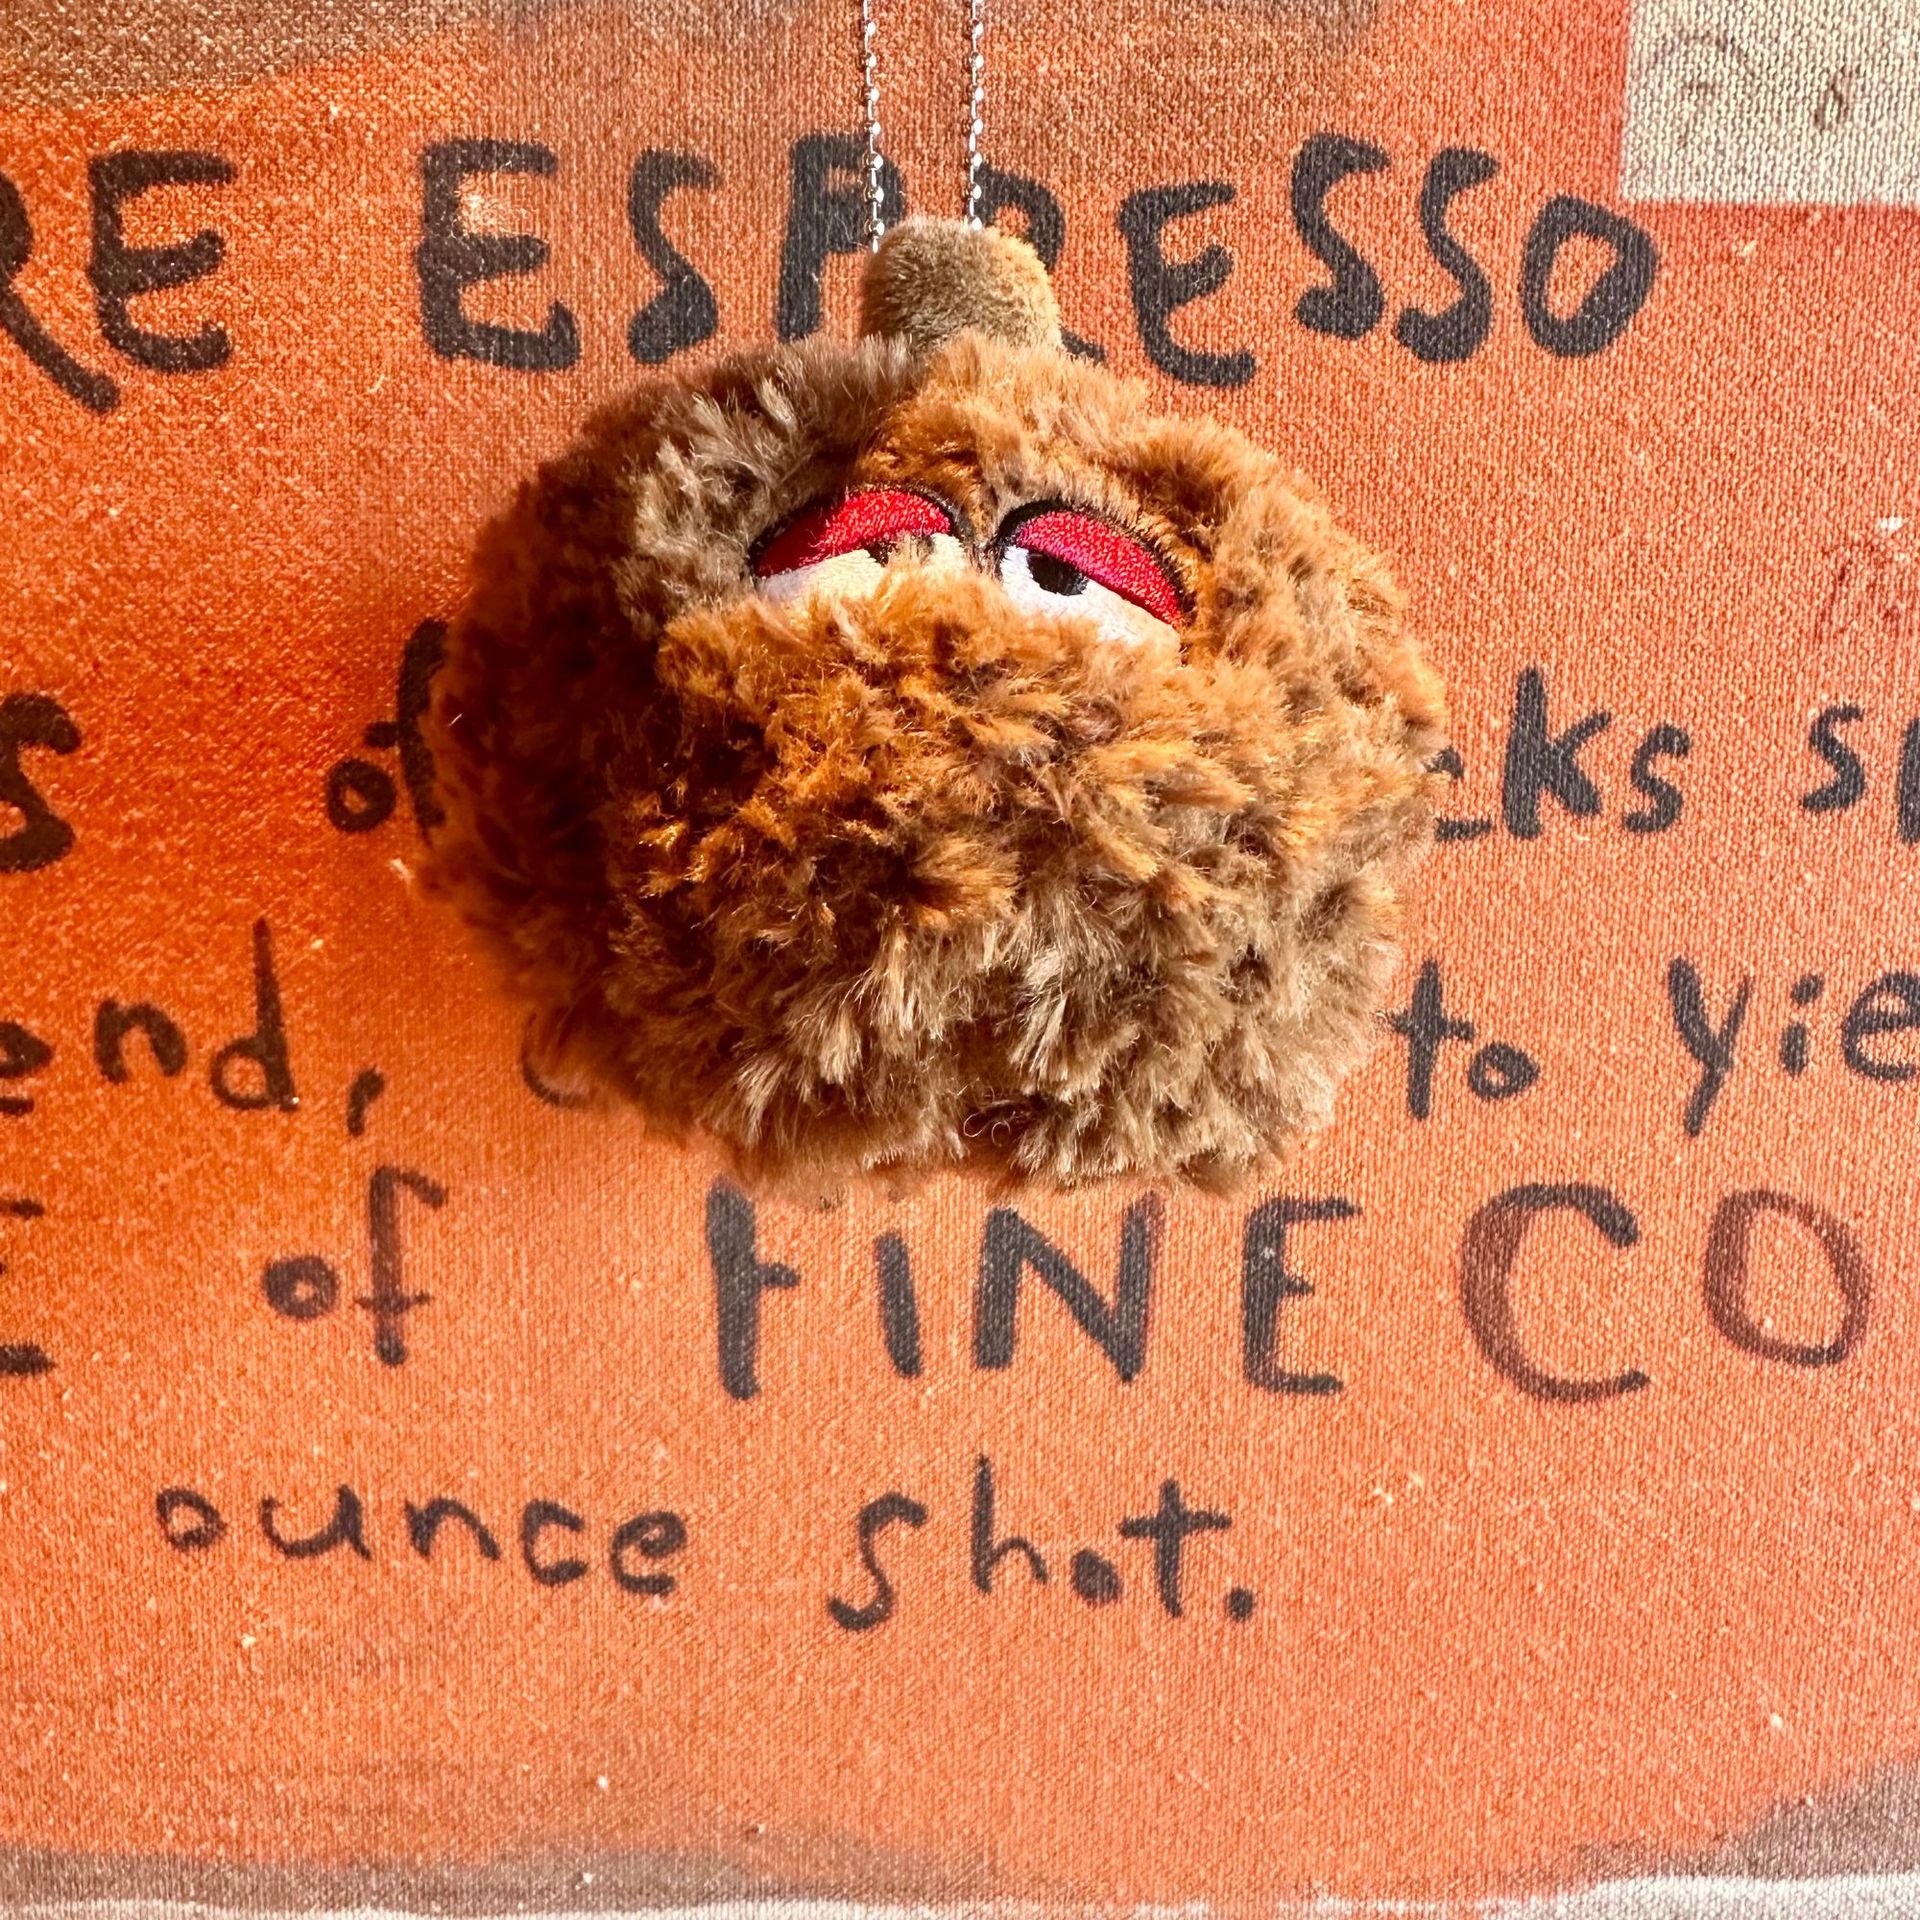 RE ESPRESSO
s of
and, to yie
of FINE CO
ounce shot.